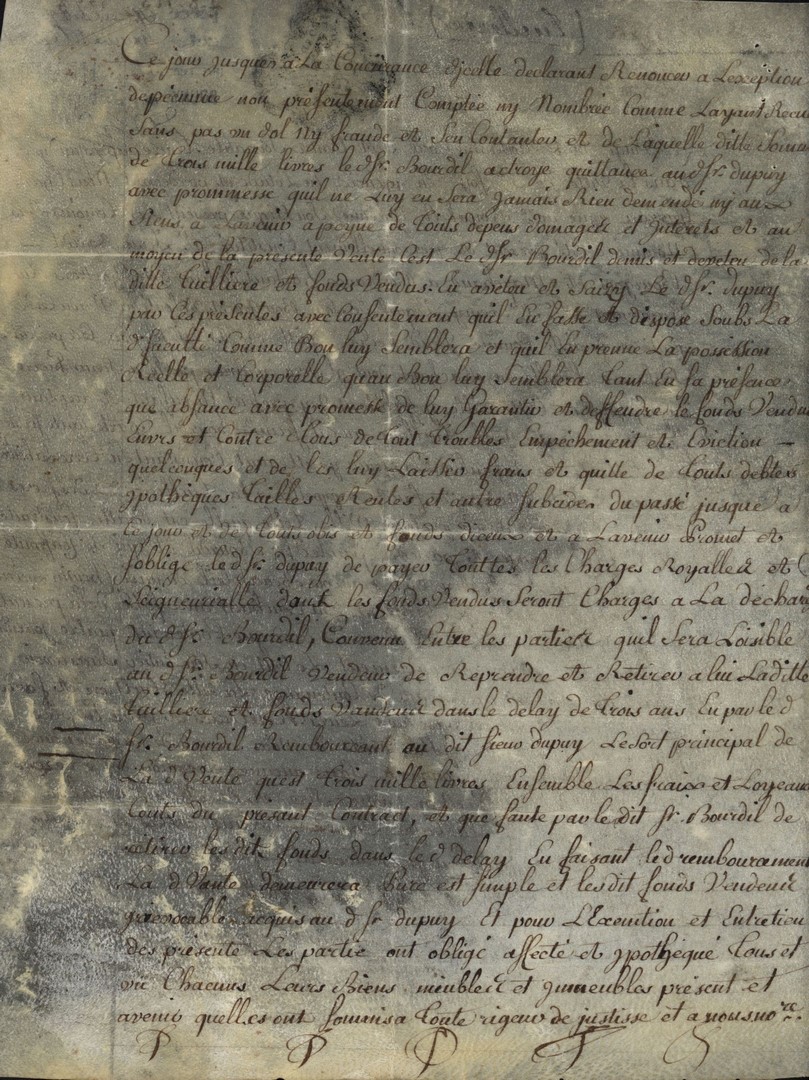 Ce jour jusques a La Concurance d'jcelle declarant Renoncer a Lexception
depecunne non présentement Comptée ny Nombrée Comme Layant Receu
Sans pas un dol Ny fraude et Sen Contanter et de Laquelle ditte Somme
de trois mille livres le dsr. Bourdil actroye quittance au dsr. dupuy
avec prommesse quil ne Luy en Sera Jamais Rien demendé ny aux
Siens a Lavenir a peyne de touts depens domages et jnterets et au
moyen de la présente Vente Cest Le dsr. Bourdil demis et devetu de la
ditte tuilliere et fonds Vendus. En avetu et Saizy Le dsr. dupuy
par Ces présentes avec Consentement quil En fasse et dispose Soubs La
d faculté Comme Bon luy Semblera et quil En prenne La possession
Réelle et Corporelle quan Bon luy Semblera tant En sa présance
que absance avec promesse de luy Garantir et deffendre le fonds Vendus
Envrs et Contre tous de tout troubles Empéchement et Eviction —
quelconques et de les luy Laisser frans et quitte de touts debtes
jpothèques tailles Rentes et autre Subcides du passé jusque a
Ce jour et de touts et fonds diceux et a Lavenir Promet et
soblige le dsr. dupuy de payer touttes les Charges Royalles et
Seigneurialle dont les fonds Vendus Seront Charges a La déchar
du dsr. Bourdil, Convenu Entre les parties quil Sera Loisible
au dsr. Bourdil Vendeur de Reprendre et Retirer a lui Laditte
tuilliere et fonds Vandeud dans le delay de trois ans En par le d
sr. Bourdil Rembourcant au dit sieur dupuy Le Sort principal de
La d Vente quest trois mille livres Ensemble Les fraix et Loyeaux
Couts du présant Contract, et que faute par le dit sr. Bourdil de
retirer les dit fonds dans le d delay En faisant le d rembourcement
La d Vante demeurera Pure est simple et les dit fonds Vendeud
jrrevocable acquis au d sr dupuy Et pour L'Execution et Entretien
des présente Les partie ont obligé affecté et jpothequé tous et
un Chacuns Leurs Biens meubles et jmmeubles présent et
avenir quelles ont soumis a toute rigeur de justisse et a nous nore.